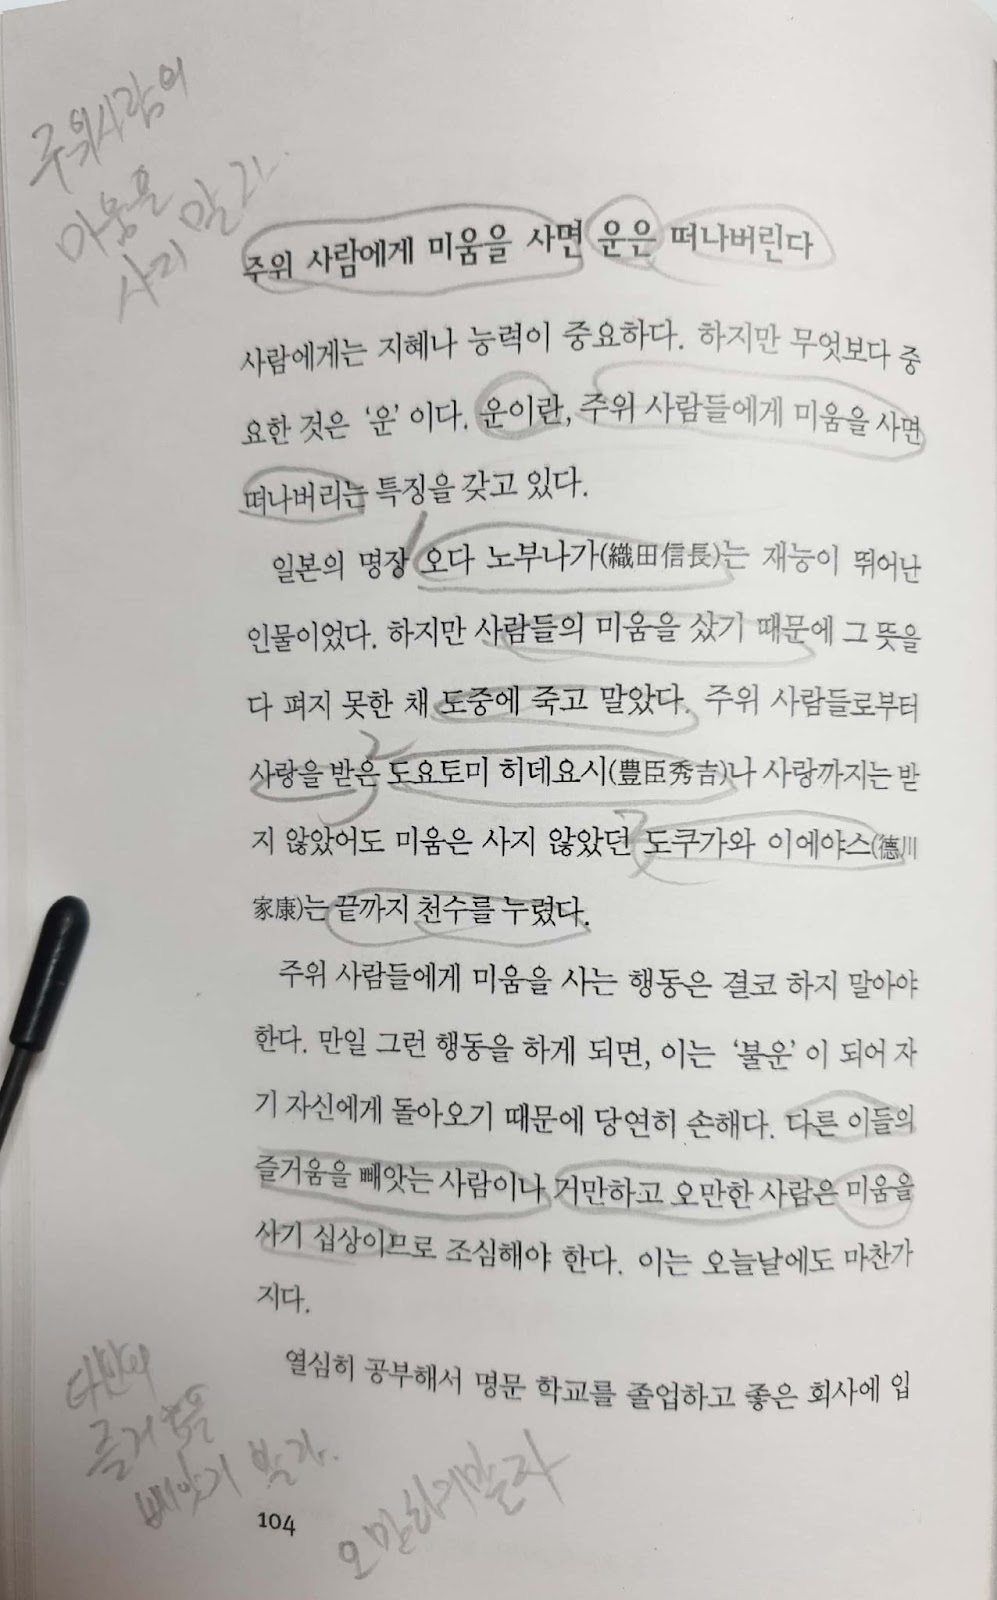 주위사람의
미움을
사지 말자.
주위 사람에게 미움을 사면 운은 떠나버린다
사람에게는 지혜나 능력이 중요하다. 하지만 무엇보다 중
요한 것은 ‘운’ 이다. 운이란, 주위 사람들에게 미움을 사면
떠나버리는 특징을 갖고 있다.
1
일본의 명장 오다 노부나가(織田信長)는 재능이 뛰어난
인물이었다. 하지만 사람들의 미움을 샀기 때문에 그 뜻을
다 펴지 못한 채 도중에 죽고 말았다. 주위 사람들로부터
2
사랑을 받은 도요토미 히데요시(豊臣秀吉)나 사랑까지는 받
지 않았어도 미움은 사지 않았던 도쿠가와 이에야스(德川
家康)는 끝까지 천수를 누렸다.
주위 사람들에게 미움을 사는 행동은 결코 하지 말아야
한다. 만일 그런 행동을 하게 되면, 이는 ‘불운’ 이 되어 자
기 자신에게 돌아오기 때문에 당연히 손해다. 다른 이들의
즐거움을 빼앗는 사람이나 거만하고 오만한 사람은 미움을
사기 십상이므로 조심해야 한다. 이는 오늘날에도 마찬가
지다.
열심히 공부해서 명문 학교를 졸업하고 좋은 회사에 입
타인의
즐거움을
빼앗지 말자.
오만하지말자
104